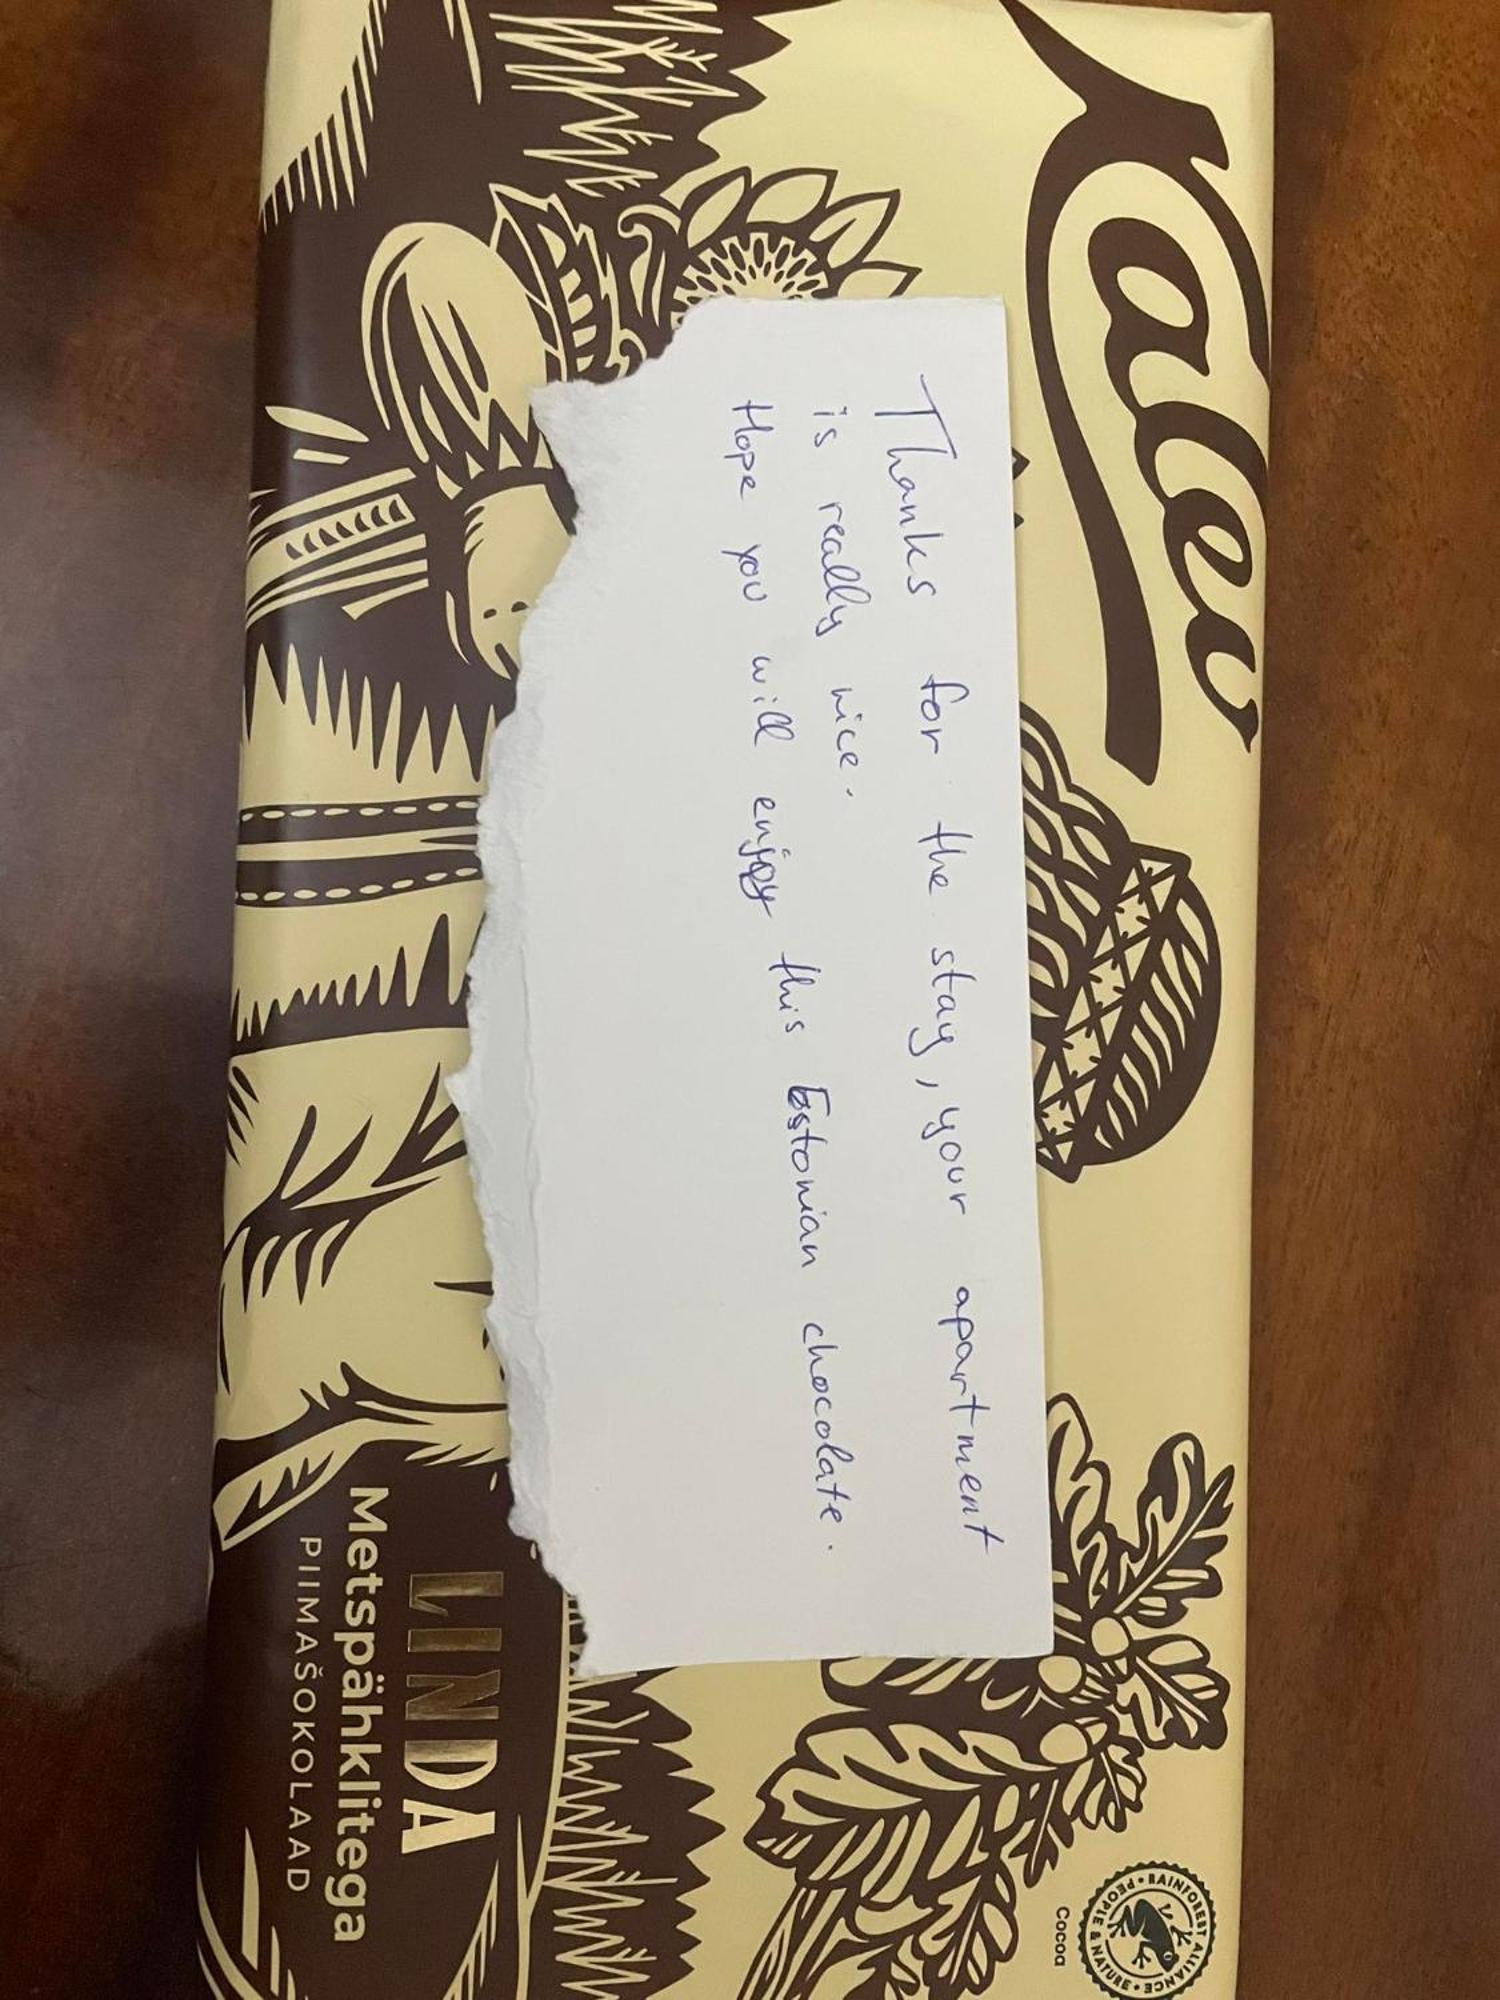 Kalev
Thanks for the stay, your apartment
is really nice.
Hope you will enjoy this Estonian chocolate.
LINDA
Metspähklitega
PIIMAŠOKOLAAD
RAINFOREST ALLIANCE • PEOPLE & NATURE •
Cocoa